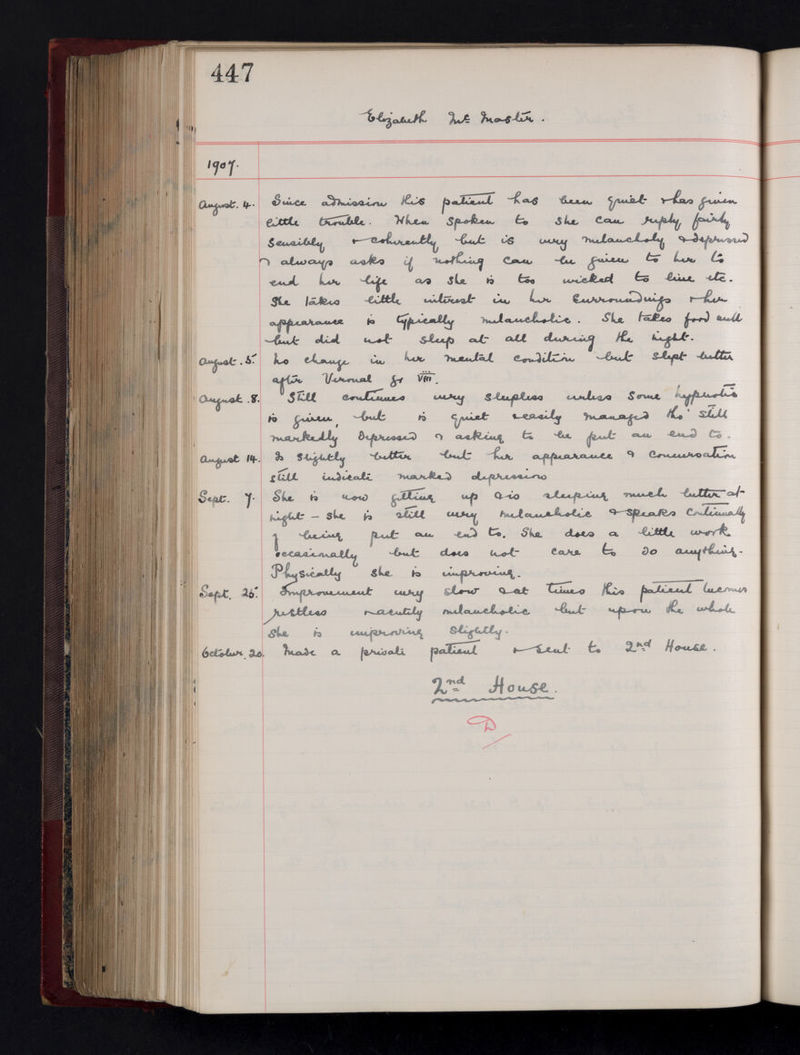 447
Elizabeth McMaster.
1907.
August. 4. Since admission this patient has been quiet & has given
little trouble. When spoken to she can reply fairly
sensibly & coherently but is very melancholy & depressed
& always asks if nothing can be given to her to
end her life as she is too wicked to live etc.
She takes little interest in her surroundings & her
appearance is typically melancholic. She takes food well
but did not sleep at all during the night.
August. 5. No change in her mental condition but slept better
after Veronal gr VIII.
August. 8. Still continues very sleepless unless some hypnotic
is given, but is quiet & easily managed tho' still
markedly depressed & asking to be put an end to.
August 14. Is slightly better but her appearance & conversation
still indicate marked depression
Sept. 7. She is now getting up & is sleeping much better at
night – she is still very melancholic & speaks continually
of being put an end to. She does a little work
occasionally but does not care to do anything.
Physically she is improving.
Sept. 26. Improvement very slow & at times this patient becomes
restless & acutely melancholic but upon the whole
she is improving slightly.
October. 20. Made a private patient & sent to 2nd House.
2nd House.
D